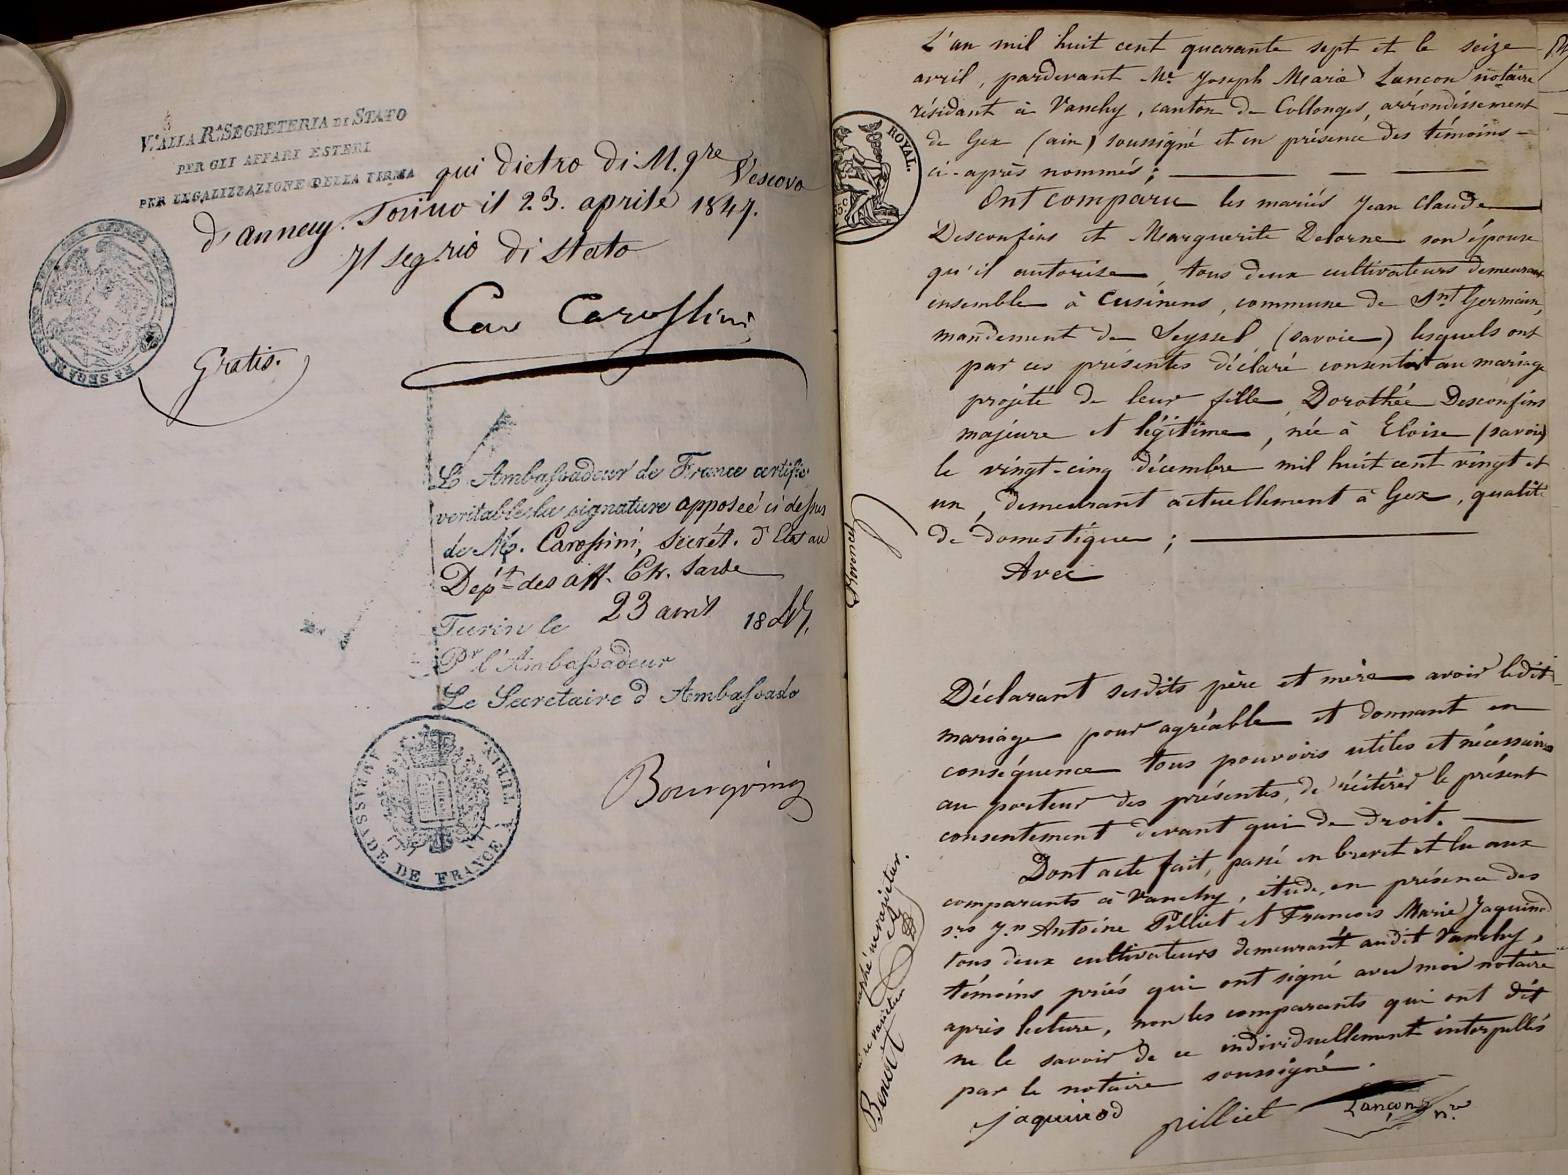 V. ALLA Rª SEGRETERIA DI STATO
PER GLI AFFARI ESTERI
PER LEGALIZZAZIONE DELLA FIRMA
qui dietro di M.gre Vescovo
d'annecy. Torino il 23. aprile 1847.
Il seg.rio di Stato
Cav Carossini
Gratis.
L'Ambassadeur de France certifie
veritable la signature apposeé ci dessus
de Mr. Carossini, Secrét. d'Etat au
Dépt. des aff. Etr. Sarde
Turin le 23 avril 1847,
Pr. l'Ambassadeur
Le Secretaire d'Ambassade
AMBASSADE DE FRANCE A TURIN
L'an mil huit cent quarante sept et le seize
avril, pardevant Me. Joseph Marie Lançon notaire
résidant à Vanchy, canton de Collonges, arrondissement
de Gex (ain) soussigné et en présence des témoins
ci-après nommés;
Ont comparu les mariés Jean Claude
Desconfins et Marguerite Delorne son épouse
qu'il autorise, tous deux cultivateurs demeurant
ensemble à Cusinens, commune de Snt Germain,
mandement de Seyssel (savoie) lesquels ont
par ces présentes déclaré consentir au mariage
projeté de leur fille, Dorothée Desconfins
majeure et légitime, née à Eloise (savoie)
le vingt-cinq décembre mil huit cent vingt et
un, demeurant actuellement à Gex, qualité
de domestique;
Avec
Déclarant sesdits père et mère avoir ledit
mariage pour agréable et donnant en
conséquence tous pouvoirs utiles et nécessaires
au porteur des présentes, de réitérer le présent
consentement devant qui de droit.
Dont acte fait, passé en brevet et lu aux
comparants à Vanchy, étude, en présence des
srs Jn Antoine Pilliet et François Marie Jaquinod
tous deux cultivateurs demeurant audit Vanchy,
témoins priés qui ont signé avec moi notaire
après lecture, non les comparants qui ont dit
ne le savoir de ce individuellement interpellés
par le notaire soussigné.
jaquinod pilliet Lançon nre
ROYAL.
ne varietur.
Benoit